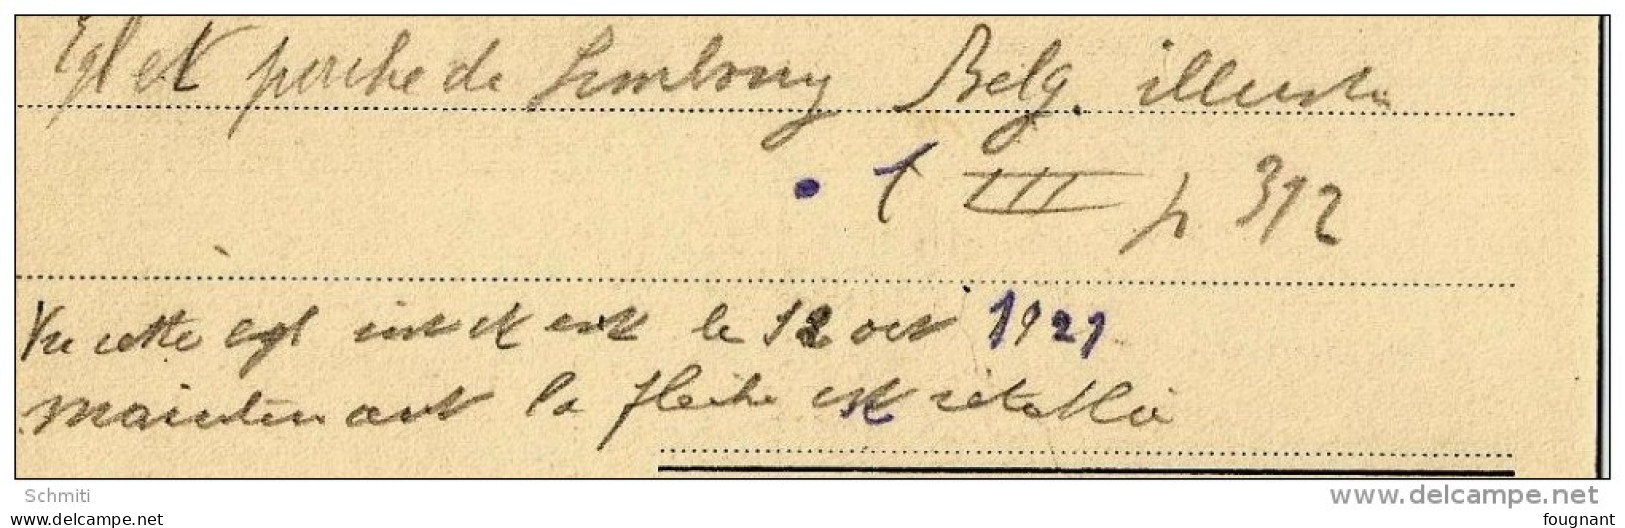 Egl et porche de Limbourg Belg. illustr
t III p 312
Vu cette egl int et ext le 12 oct 1921
maintenant la flèche est rétablie
Schmiti
www.delcampe.net
www.delcampe.net
fougnant